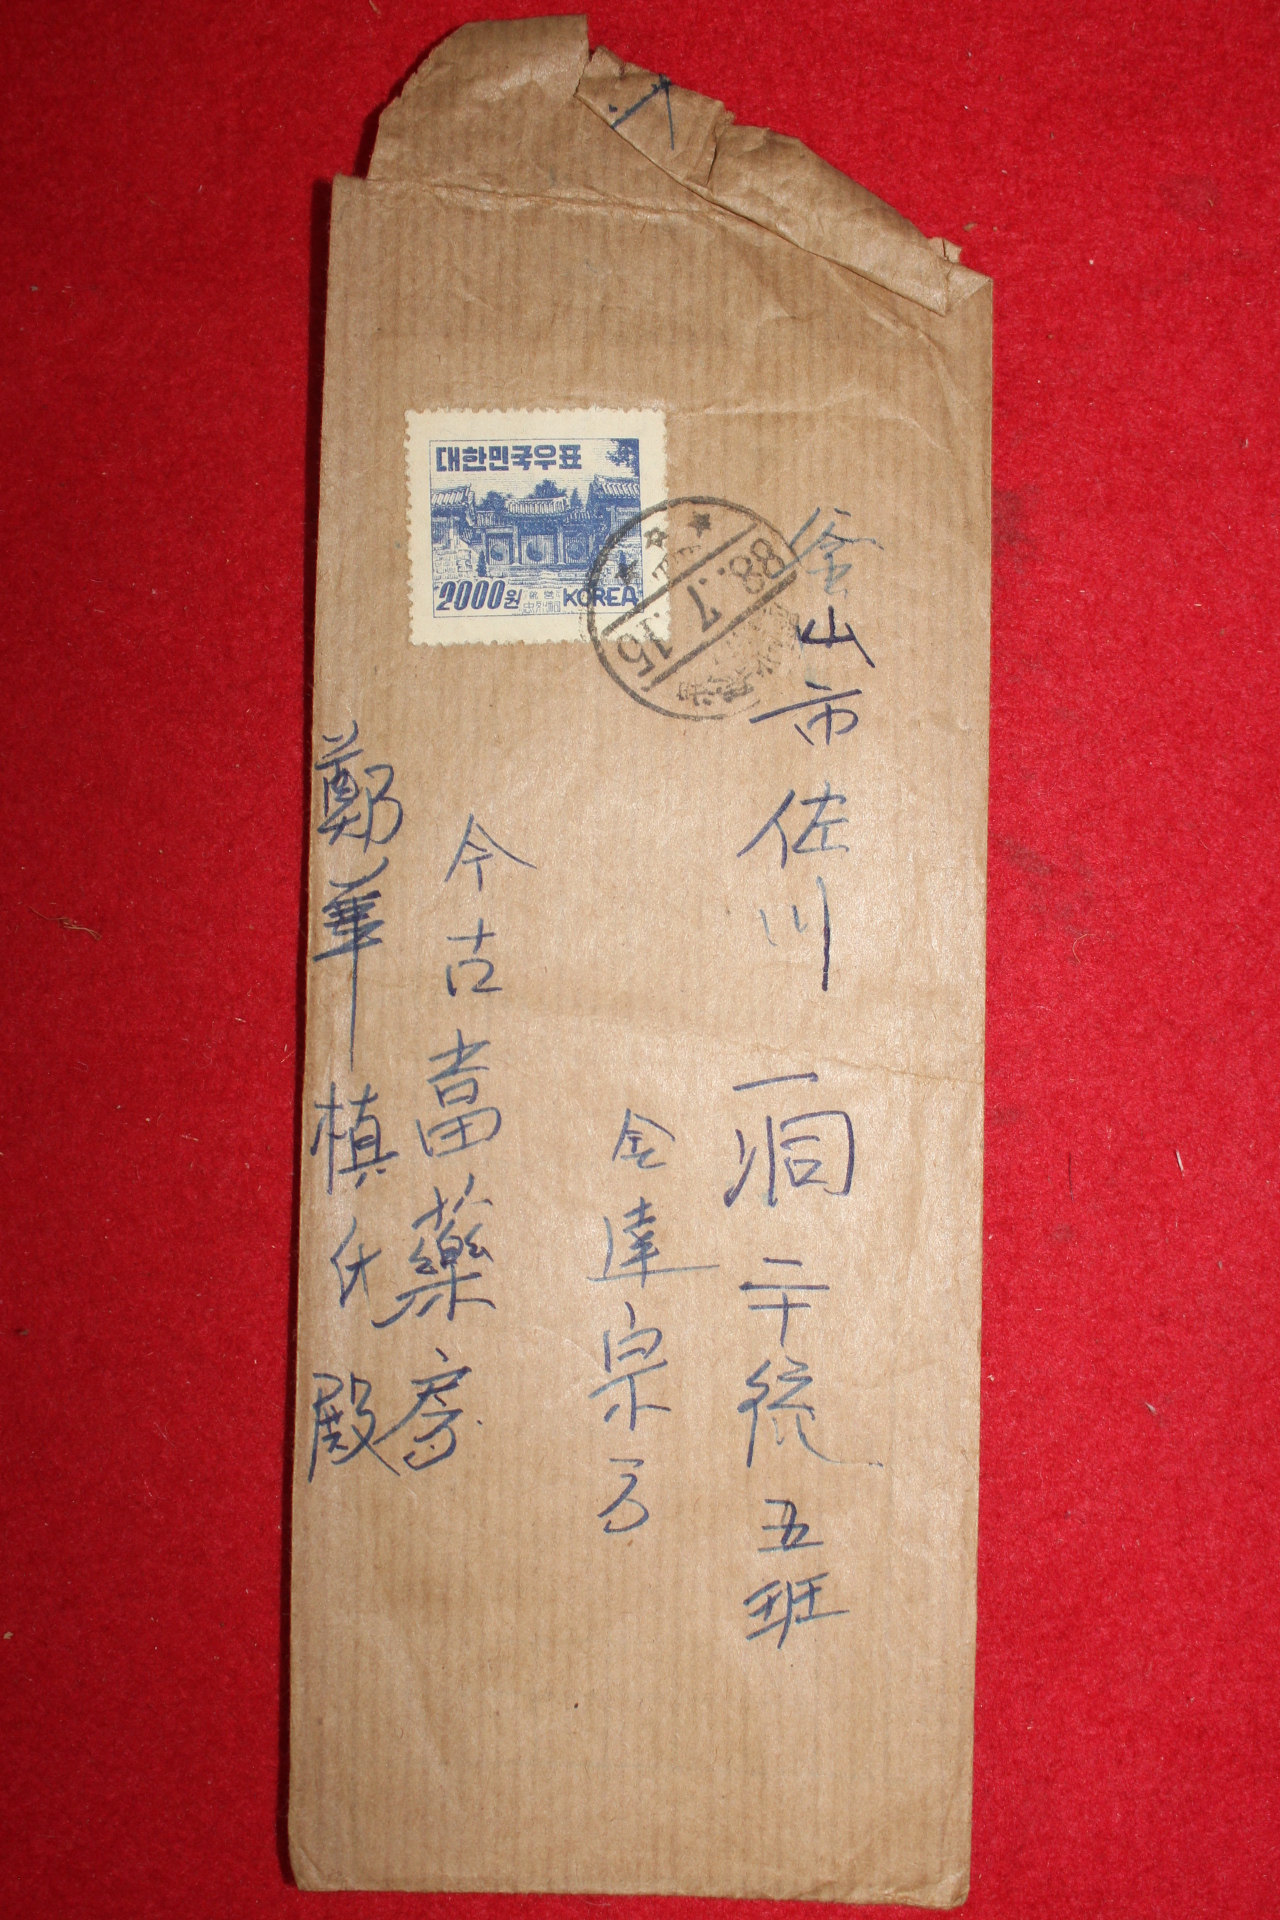 대한민국우표
2000원 KOREA
88.7.15
釜山市佐川一洞二千統五班
金達宗方
今古當藥房
鄭華槙氏殿